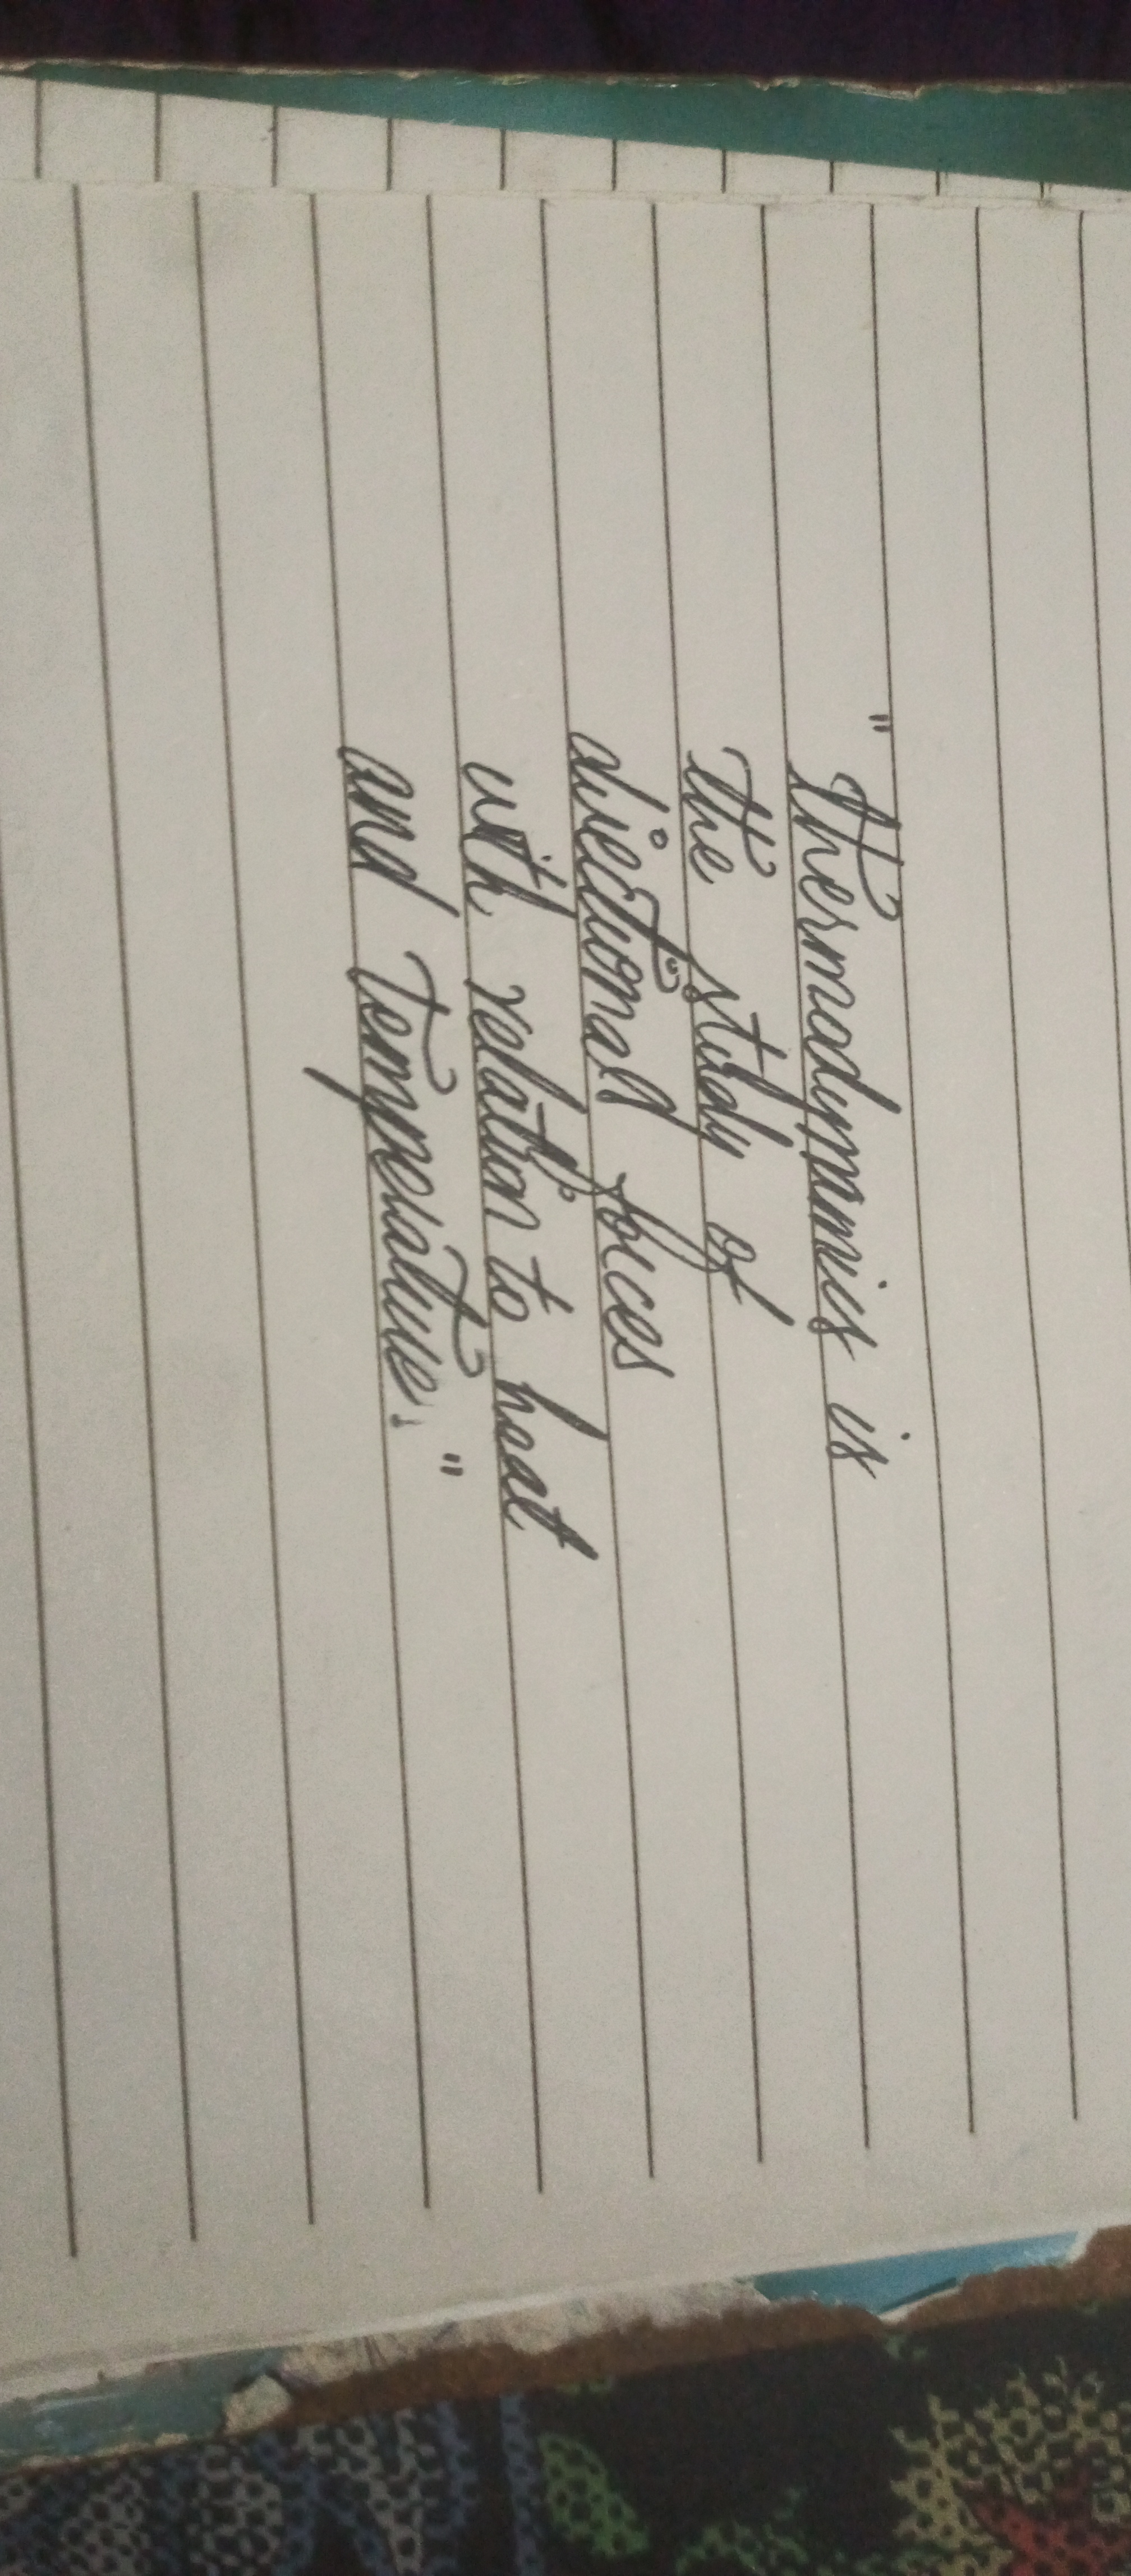 " Thermodynamics is
the study of
directional forces
with relation to heat
and Temperature. "